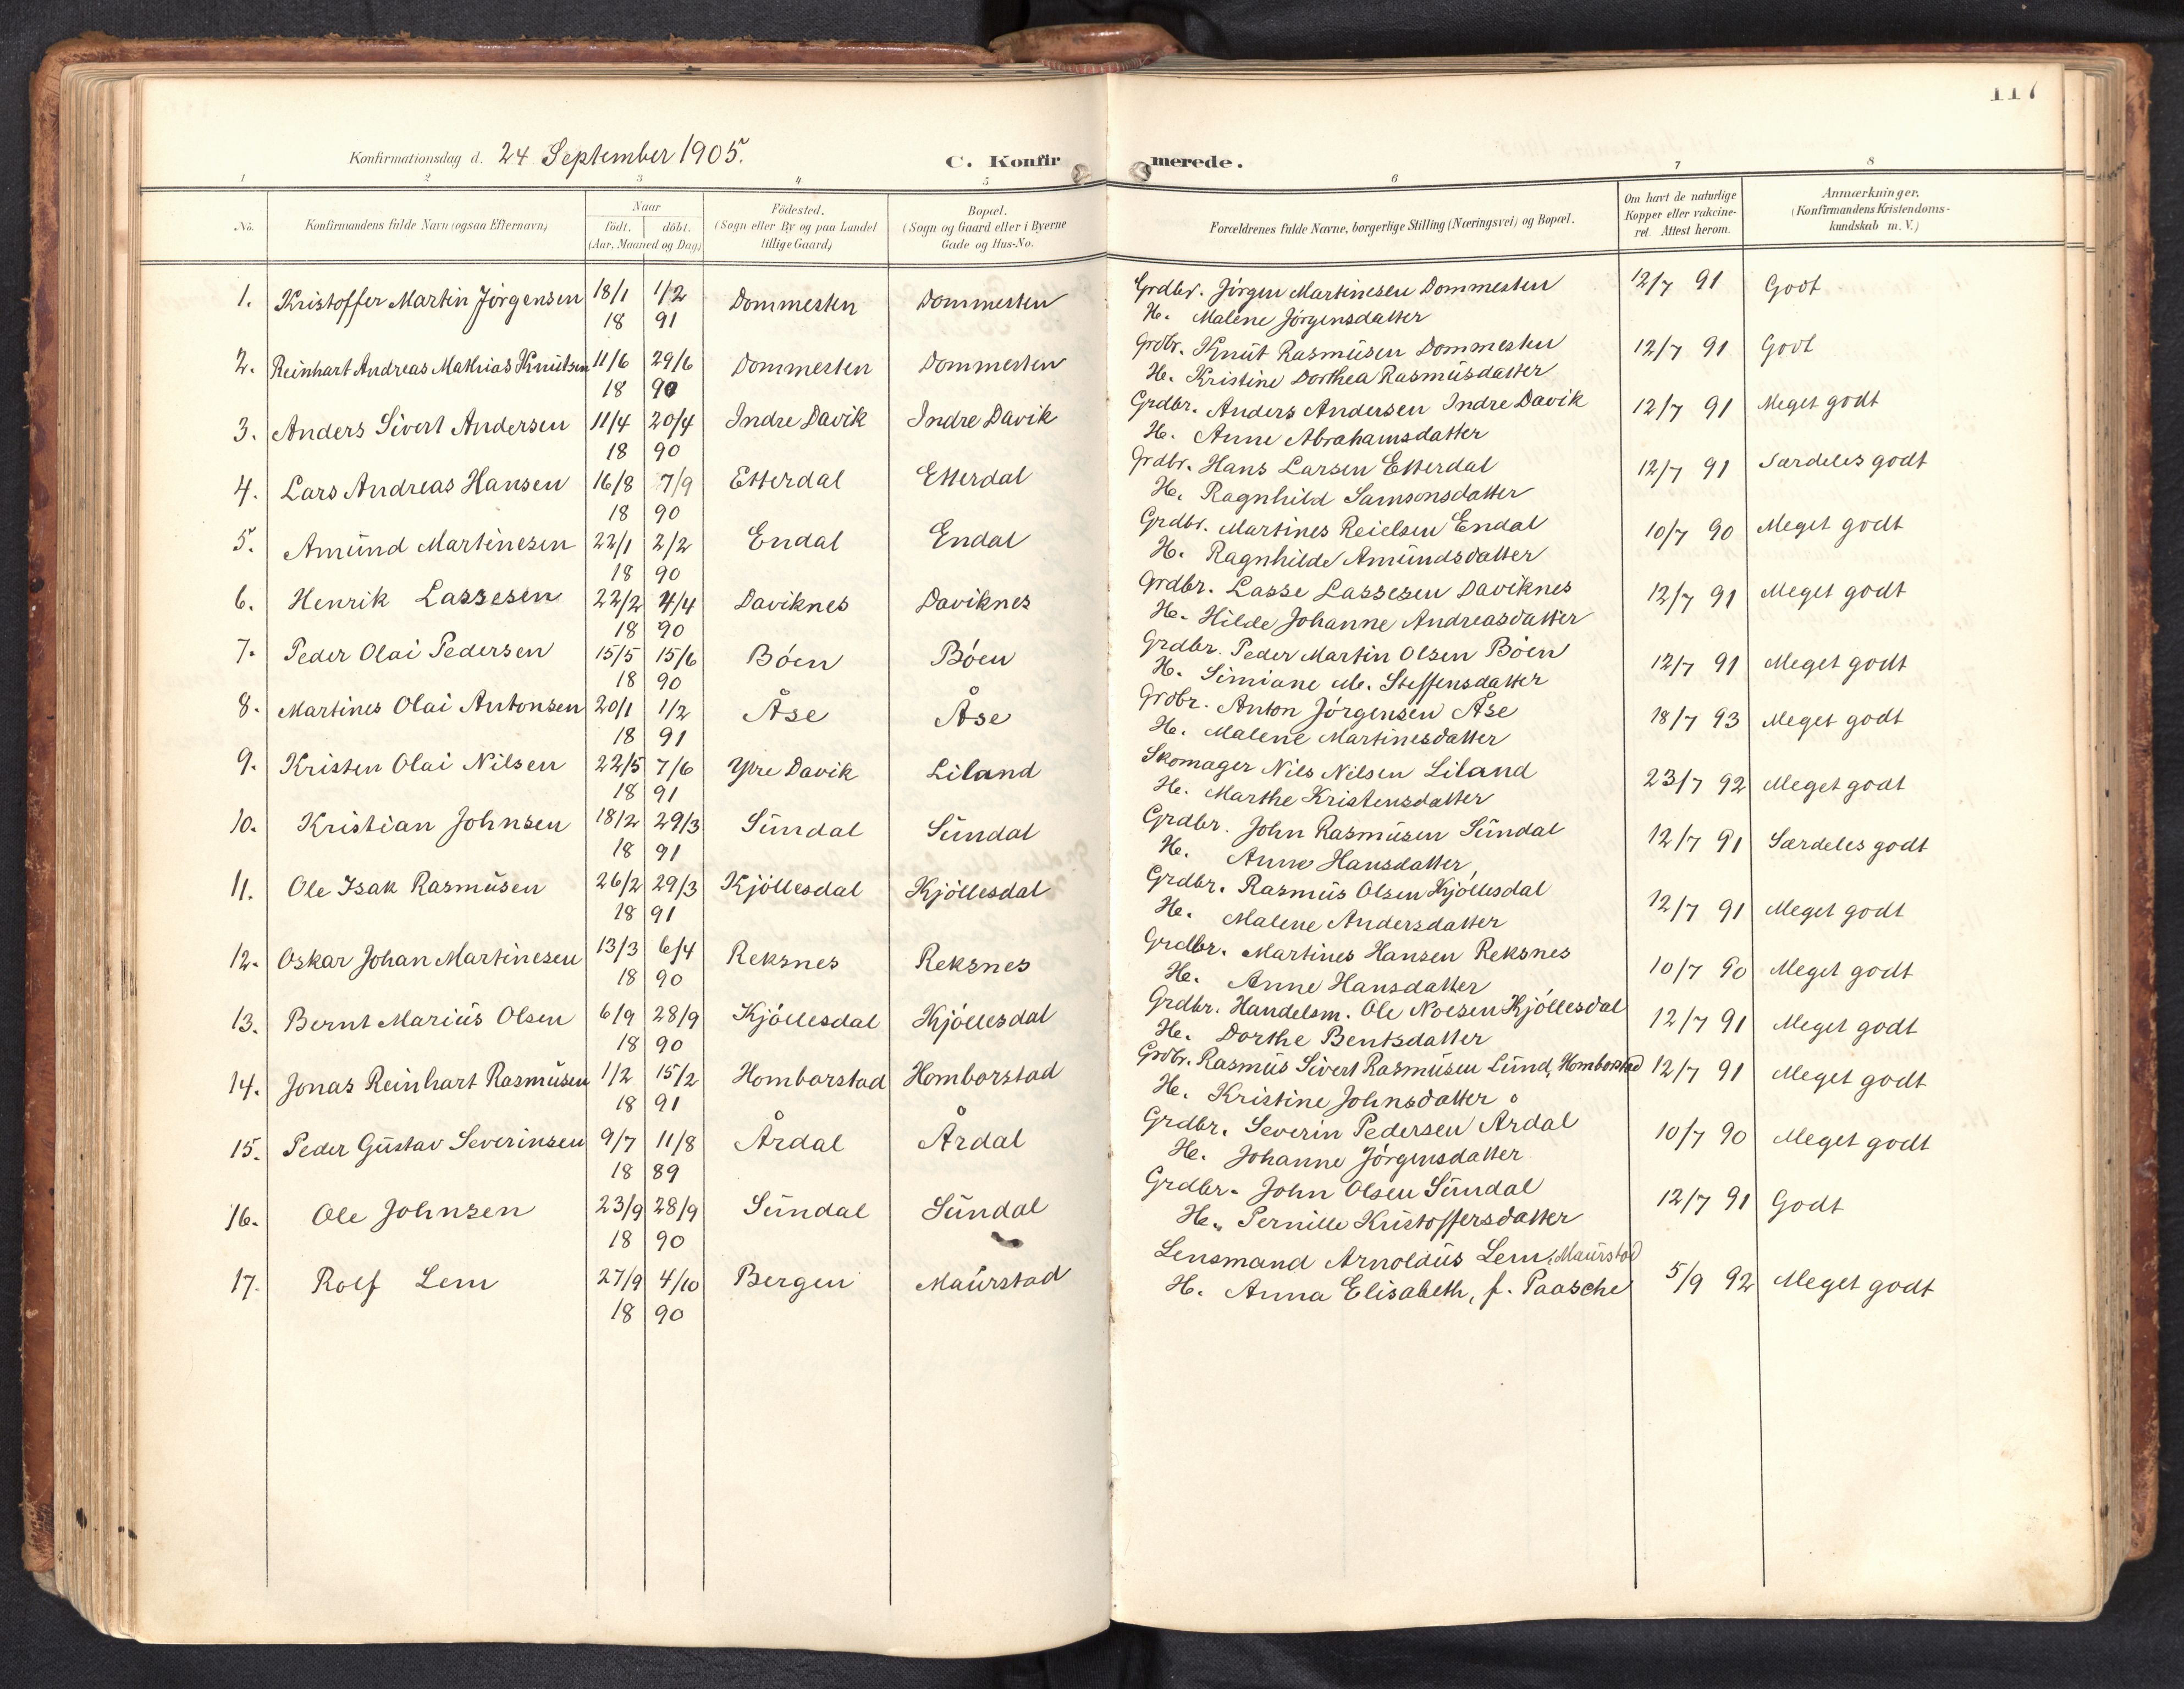 117
Konfirmationsdag d. 24 September 1905.
C. Konfirmerede.
1 2 3 4 5 6 7 8
No. Konfirmandens fulde Navn (ogsaa Efternavn) Naar födt. döbt. (Aar, Maaned og Dag) Födested. (Sogn eller By og paa Landet tillige Gaard) Bopæl. (Sogn og Gaard eller i Byerne Gade og Hus-No. Forældrenes fulde Navne, borgerlige Stilling (Næringsvei) og Bopæl. Om havt de naturlige Kopper eller vakcineret. Attest herom. Anmærkninger. (Konfirmandens Kristendomskundskab m.V.)
1. Kristoffer Martin Jörgensen 18/1 1/2 Dommesten Dommesten Grdbr. Jörgen Martinesen Dommesten 12/7 91 Godt
18 91 H. Malene Jörgensdatter
2. Reinhart Andreas Mathias Knutsen 11/6 29/6 Dommesten Dommesten Grdbr. Knut Rasmusen Dommesten 12/7 91 Godt
18 90 H. Kristine Dorthea Rasmusdatter
3. Anders Sivert Andersen 11/4 20/4 Indre Davik Indre Davik Grdbr. Anders Andersen Indre Davik 12/7 91 Meget godt
18 90 H. Anne Abrahamsdatter
4. Lars Andreas Hansen 16/8 7/9 Etterdal Etterdal Grdbr. Hans Larsen Etterdal 12/7 91 Særdeles godt
18 90 H. Ragnhild Samsonsdatter
5. Amund Martinesen 22/1 2/2 Endal Endal Grdbr. Martines Reielsen Endal 10/7 90 Meget godt
18 90 H. Ragnhilde Amundsdatter
6. Henrik Lassesen 22/2 4/4 Daviknes Daviknes Grdbr. Lasse Lassesen Daviknes 12/7 91 Meget godt
18 90 H. Hilde Johanne Andreasdatter
7. Peder Olai Pedersen 15/5 15/6 Böen Böen Grdbr. Peder Martin Olsen Böen 12/7 91 Meget godt
18 90 H. Simiane M. Steffensdatter
8. Martines Olai Antonsen 20/1 1/2 Åse Åse Grdbr. Anton Jörgensen Åse 18/7 93 Meget godt
18 91 H. Malene Martinesdatter
9. Kristen Olai Nilsen 22/5 7/6 Ytre Davik Liland Skomager Nils Nilsen Liland 23/7 92 Meget godt
18 91 H. Marthe Kristensdatter
10. Kristian Johnsen 18/2 29/3 Sundal Sundal Grdbr. John Rasmusen Sundal 12/7 91 Særdeles godt
18 91 H. Anne Hansdatter
11. Ole Isak Rasmusen 26/2 29/3 Kjöllesdal Kjöllesdal Grdbr. Rasmus Olsen Kjöllesdal 12/7 91 Meget godt
18 91 H. Malene Andersdatter
12. Oskar Johan Martinesen 13/3 6/4 Reksnes Reksnes Grdbr. Martines Hansen Reksnes 10/7 90 Meget godt
18 90 H. Anne Hansdatter
13. Bernt Marius Olsen 6/9 28/9 Kjöllesdal Kjöllesdal Grdbr. Handelsm. Ole Noesen Kjöllesdal 12/7 91 Meget godt
18 90 H. Dorthe Bentsdatter
14. Jonas Reinhart Rasmusen 1/2 15/2 Homborstad Homborstad Grdbr. Rasmus Sivert Rasmusen Lund, Homborstad 12/7 91 Meget godt
18 91 H. Kristine Johnsdatter
15. Peder Gustav Severinsen 9/7 11/8 Årdal Årdal Grdbr. Severin Pedersen Årdal 10/7 90 Meget godt
18 89 H. Johanne Jörgensdatter
16. Ole Johnsen 23/9 28/9 Sundal Sundal Grdbr. John Olsen Sundal 12/7 91 Godt
18 90 H. Pernille Kristoffersdatter
17. Rolf Lem 27/9 4/10 Bergen Maurstad Lensmand Arnoldus Lem, Maurstad 5/9 92 Meget godt
18 90 H. Anna Elisabeth, f. Paasche